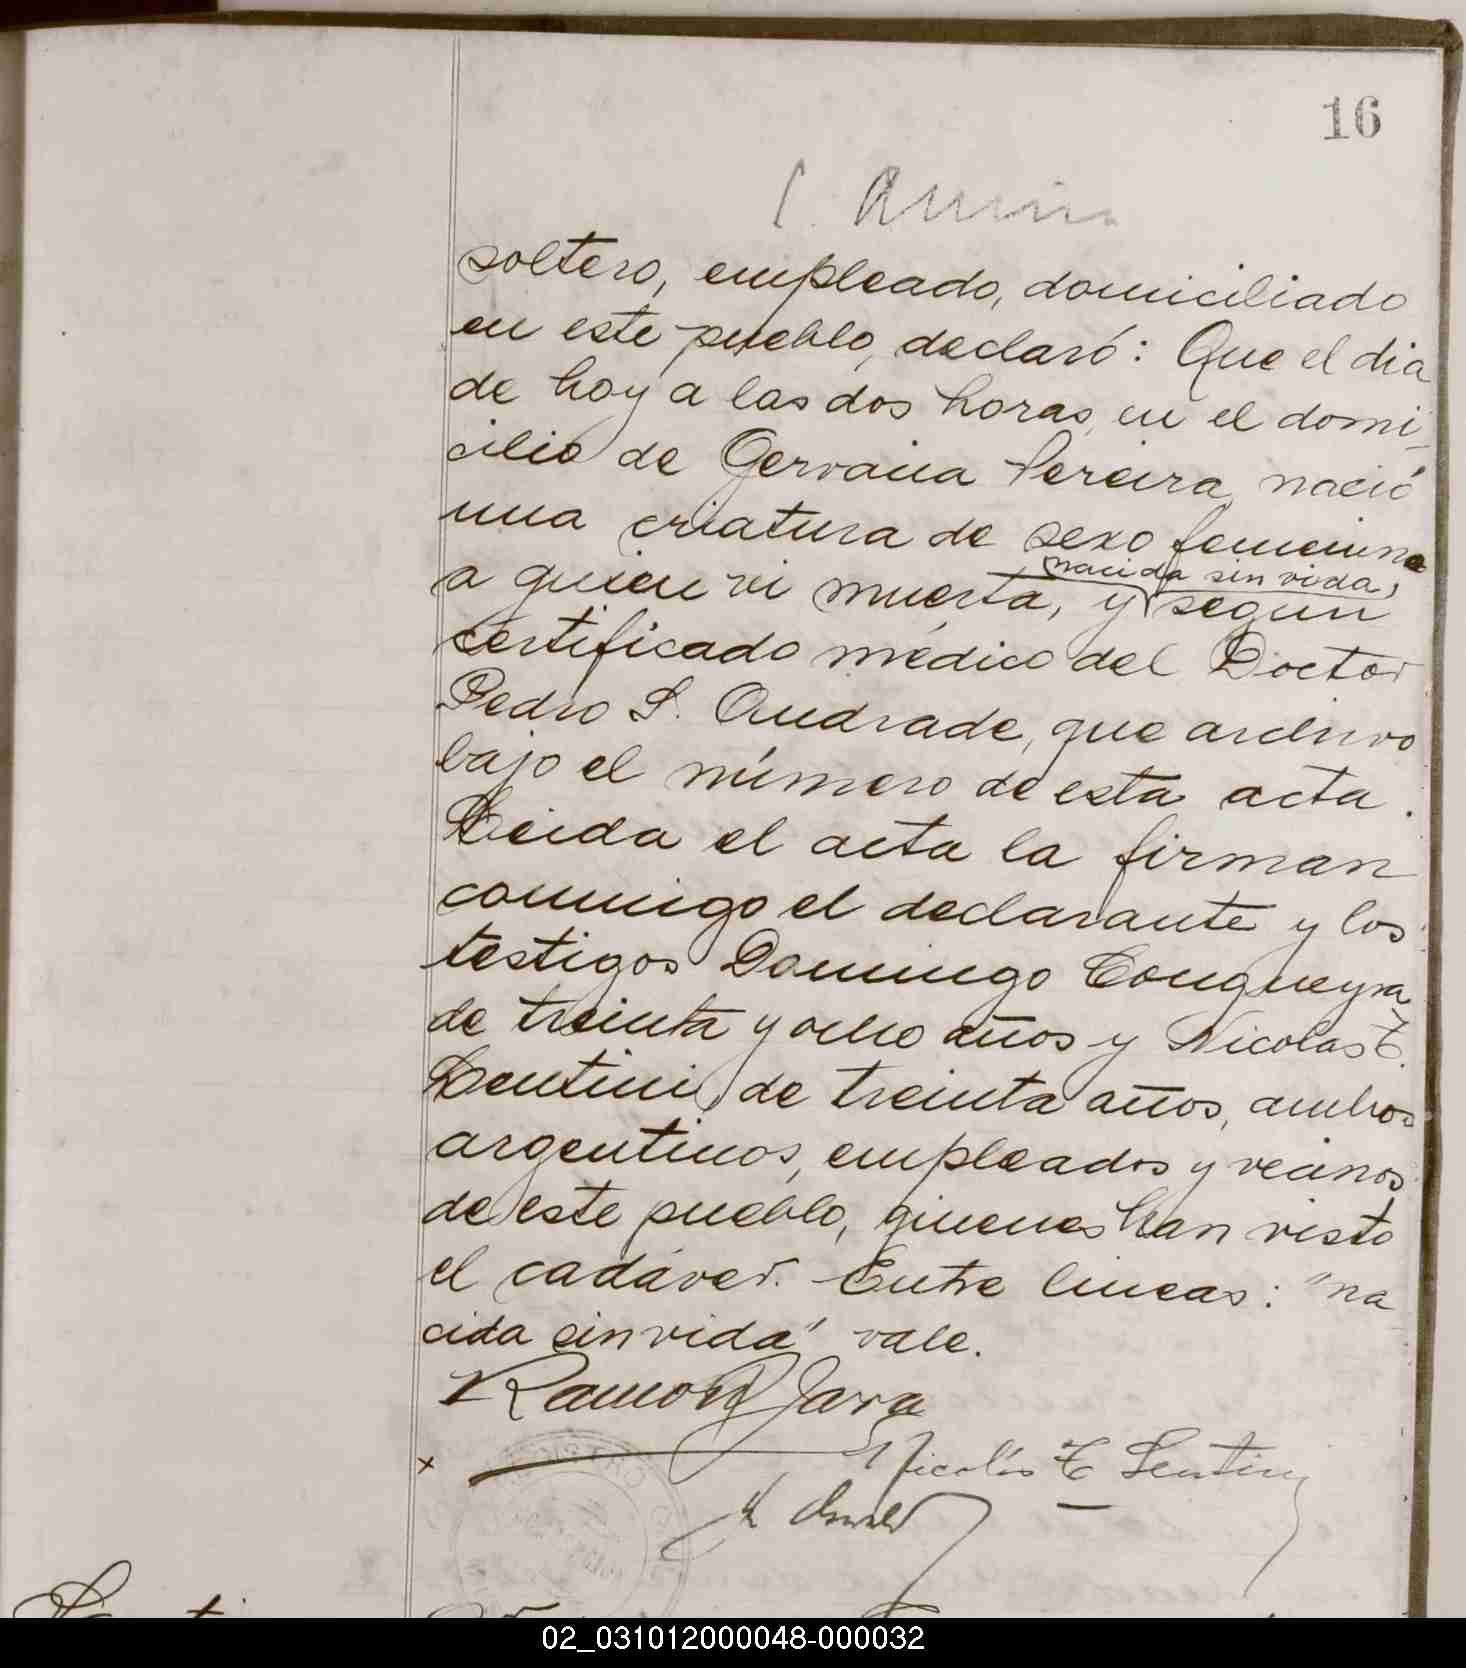 16
soltero, empleado, domiciliado
en este pueblo, declaró: Que el dia
de hoy a las dos horas, en el domi-
cilio de Gervasia Pereira, nació
una criatura de sexo femenino
nacida sin vida,
a quien vi muerta, y segun
certificado médico del Doctor
Pedro S. Andrade, que archivo
bajo el número de esta acta.
Leida el acta la firman
conmigo el declarante y los
testigos Domingo Congueyra
de treinta y ocho años y Nicolas E.
Lentini, de treinta años, ambos
argentinos, empleados y vecinos
de este pueblo, quienes han visto
el cadáver. Entre lineas: "na
cida sin vida" vale.
Ramon Jara
x
Nicolás E Lentini
02_031012000048-000032